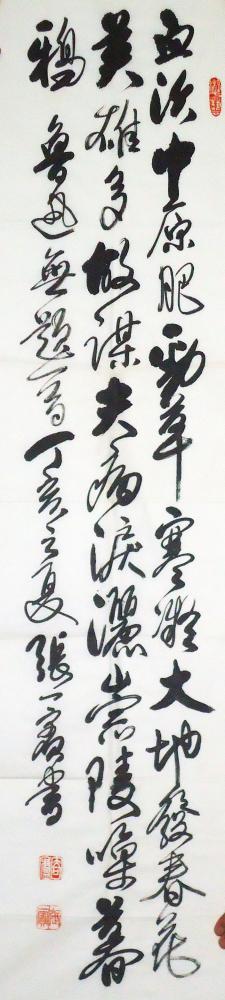 血沃中原肥勁草寒凝大地發春花
英雄多故謀夫病淚灑崇陵噪暮
鴉 魯迅無題一首丁亥之夏張一書